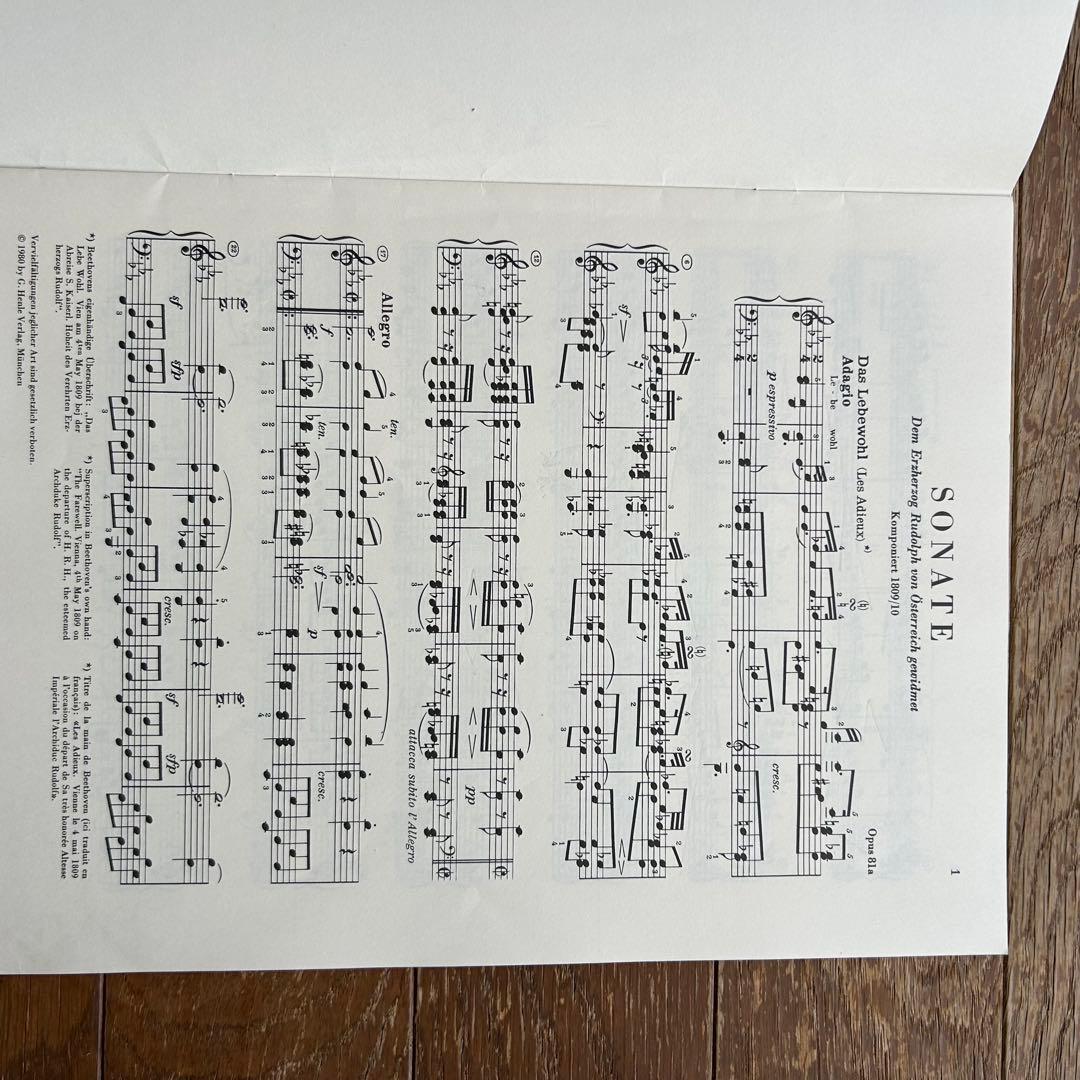 1
SONATE
Dem Erzherzog Rudolph von Österreich gewidmet
Komponiert 1809/10
Opus 81a
Das Lebewohl (Les Adieux) *)
Adagio
Le - be wohl
p espressivo
cresc.
6
sf
12
pp
attacca subito l'Allegro
17
Allegro
ten.
f
ten.
sf
p
cresc.
22
sf
sfp
cresc.
sf
sfp
*) Beethovens eigenhändige Überschrift: „Das
Lebe Wohl. Wien am 4ten May 1809 bej der
Abreise S. Kaiserl. Hoheit des Verehrten Erz-
herzogs Rudolf".
*) Superscription in Beethoven's own hand:
"The Farewell. Vienna, 4th May 1809 on
the departure of H. R. H., the esteemed
Archduke Rudolf".
*) Titre de la main de Beethoven (ici traduit en
français): «Les Adieux. Vienne le 4 mai 1809
à l'occasion du départ de Sa très honorée Altesse
Impériale l'Archiduc Rudolf».
Vervielfältigungen jeglicher Art sind gesetzlich verboten.
© 1980 by G. Henle Verlag, München